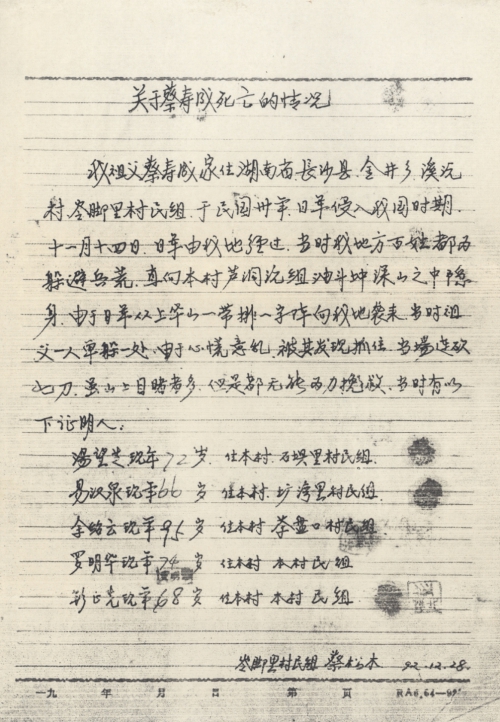 关于蔡寿成死亡的情况
我祖父蔡寿成家住湖南省.長沙县.金井乡.溪沅
村.岑脚里村民组.于民国卅年.日军侵入我国时期.
十一月十四日.日军由我地经过.当时我地方百姓都为
躲避兵荒.直向本村芦洞沅组油斗坤深山之中隐
身.由于日军从上华山一带排一字阵向我地袭来.当时祖
父一人单躲一处.由于心慌意乱.被其发现抓住.当場连砍
七刀.虽山上目睹者多.但是都无能为力挽救.当时有以
下证明人:
湯望芝现年72岁.住本村.石坝里村民组.
易汉泉现年66岁 住本村.圹湾里村民组.
余绍云现年95岁 住本村 茶盘口村民组
罗明华现年74岁 住本村 本村民组
彭正克现年68岁 住本村 本村民组
岑脚里村民组 蔡 木 92.12.28.
一九 年 月 日 第 页 RA6.64—99